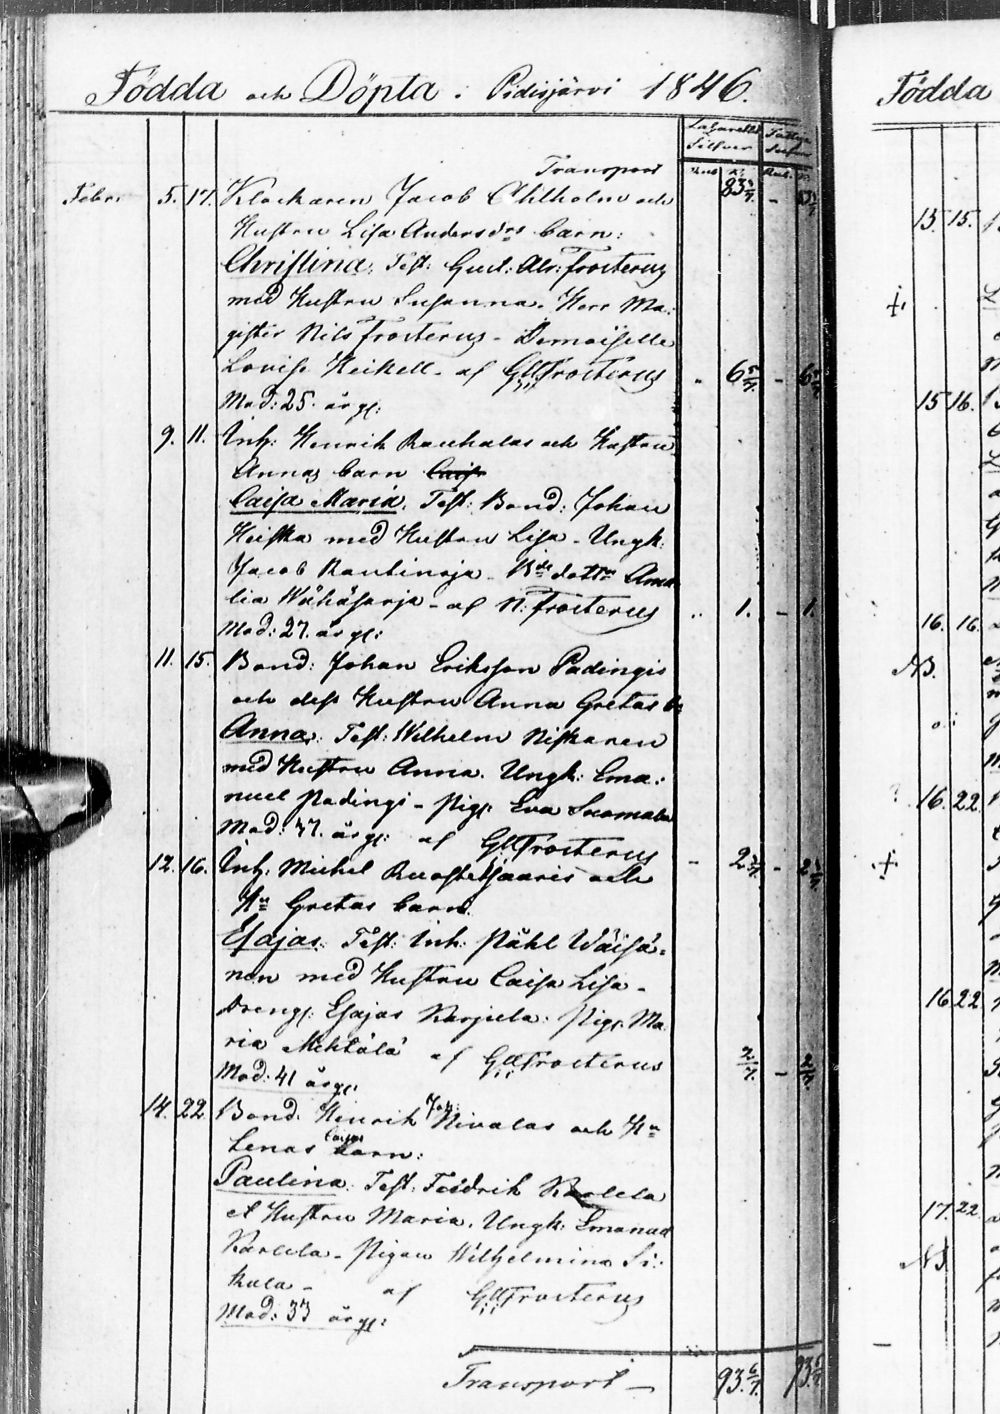 Födda och Döpta i Pidisjärvi 1846.
Lazarett Fattige
Silfver Silfver
Rub. K. Rub. K.
Transport 83 5/7.
Febr. 5. 17. Klockaren Jacob Ehlholm och
Hustru Lisa Andersdrs barn:
Christina. Test: Gust: Alr: Frosterus
med Hustru Susanna. Herr Ma:
gister Nils Frosterus - Demoiselle
Lovise Heikell - af GAFrosterus - 6 5/7. - 6 5/7.
Mod: 25. år gl:
9. 11. Inh: Henrik Rauhalas och Hustru
Annas barn Caisa
Caisa Maria. Test: Bond: Johan
Heiska med Hustru Lisa - Ungk:
Jacob Rautinoja - Bde dottrn Ama
lia Wähäsarja - af N. Frosterus .. 1. - 1.
Mod: 27. år gl:
11. 15. Bond: Johan Eriksson Padingis
och dess Hustru Anna Gretas b:
Anna. Test: Wilhelm Niskanen
med Hustru Anna. Ungk: Ema:
nuel Padingi - Pig: Eva Suomala
Mod: 37. år gl: af GAFrosterus - 2 5/7. - 2 5/7.
12. 16. Inh: Michel Ruostetsaaris och
Hu Gretas barn.
Esajas. Test: Inh: Påhl Wäisä:
nen med Hustru Caisa Lisa -
Dreng: Esajas Karjula. Pig: Ma
ria Mehtälä af GAFrosterus 2/7. - 2/7.
Mod: 41 år gl:
14. 22. Bond: Henrik Joh: Nivalas och Hu
Lenas Caisas barn:
Paulina. Test: Fredrik Karlela
et Hustru Maria. Ungk: Emanuel
Karlela - Pigan Wilhelmina Si:
kala - af GAFrosterus
Mod: 33 år gl:
Transport - 93. 6/7. 93. 6/7.
Födda
15. 15.
15 16.
16. 16.
NB.
16. 22.
16 22
17. 22
NB.